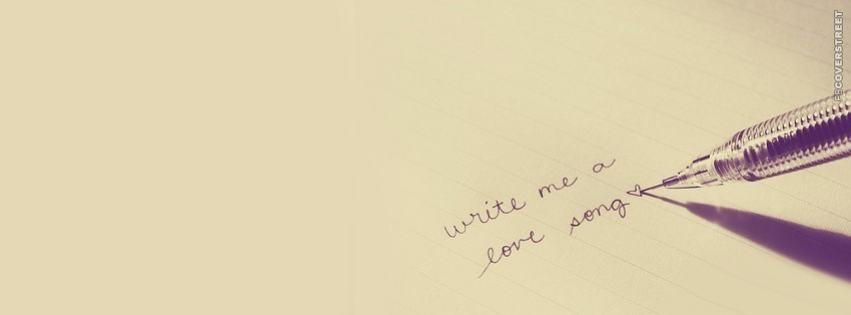 write me a
love song
FBCOVERSTREET